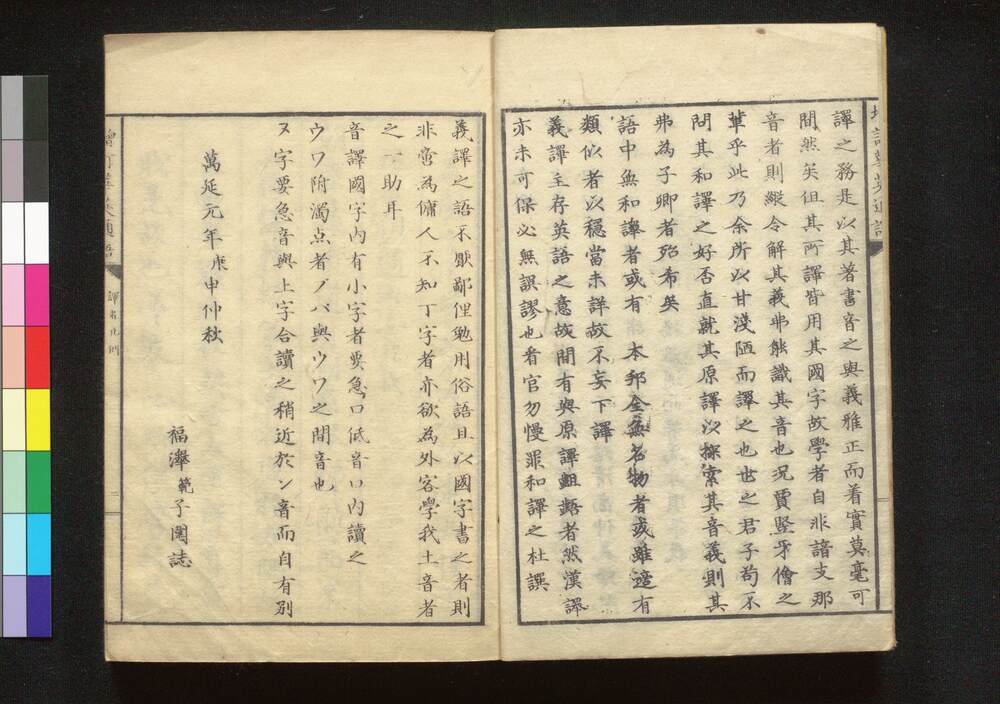 譯之務是以其著書音之與義雅正而着實莫毫可
間然矣但其所譯皆用其國字故學者自非諳支那
音者則縱令解其義弗能識其音也況賈豎牙儈之
輩乎此乃余所以甘淺陋而譯之也世之君子苟不
問其和譯之好否直就其原譯以探索其音義則其
弗為子卿者殆希矣
語中無和譯者或有 本邦全無名物者或雖邊有
類似者以穩當未詳故不妄下譯
義譯主存英語之意故間有與原譯齟齬者然漢譯
亦未可保必無誤謬也看官勿慢罪和譯之杜譔
義譯之語不厭鄙俚勉用俗語且以國字書之者則
非啻為傭人不知丁字者亦欲為外客學我土音者
之一助耳
音譯國字內有小字者要急口低音口內讀之
ウワ附濁点者ノバ與ウワ之間音也
ヌ字要急音與上字合讀之稍近於ン音而自有別
萬延元年庚申仲秋
福澤範子圍誌
增訂華英通語
譯者凡例
二